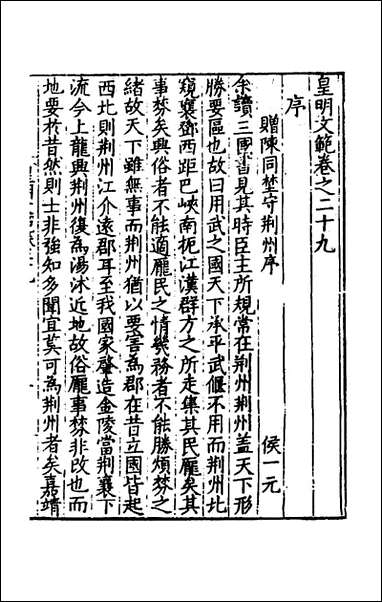 皇明文範卷之二十九
序
贈陳同埜守荊州序
侯一元
余讀三國書見其時臣主所規常在荊州荊州蓋天下形
勝要區也故曰用武之國天下承平武偃不用而荊州北
窺襄鄧西距巴峽南扼江漢群方之所走集其民厖矣其
事棼矣興俗者不能適厖民之情幾務者不能勝煩棼之
緒故天下雖無事而荊州猶以要害為郡在昔立國皆起
西北則荊州江介遠郡耳至我國家肇造金陵當荊襄下
流今上龍興荊州復為湯沐近地故俗厖事棼非改也而
地要於昔然則士非強知多聞宜莫可為荊州者矣嘉靖